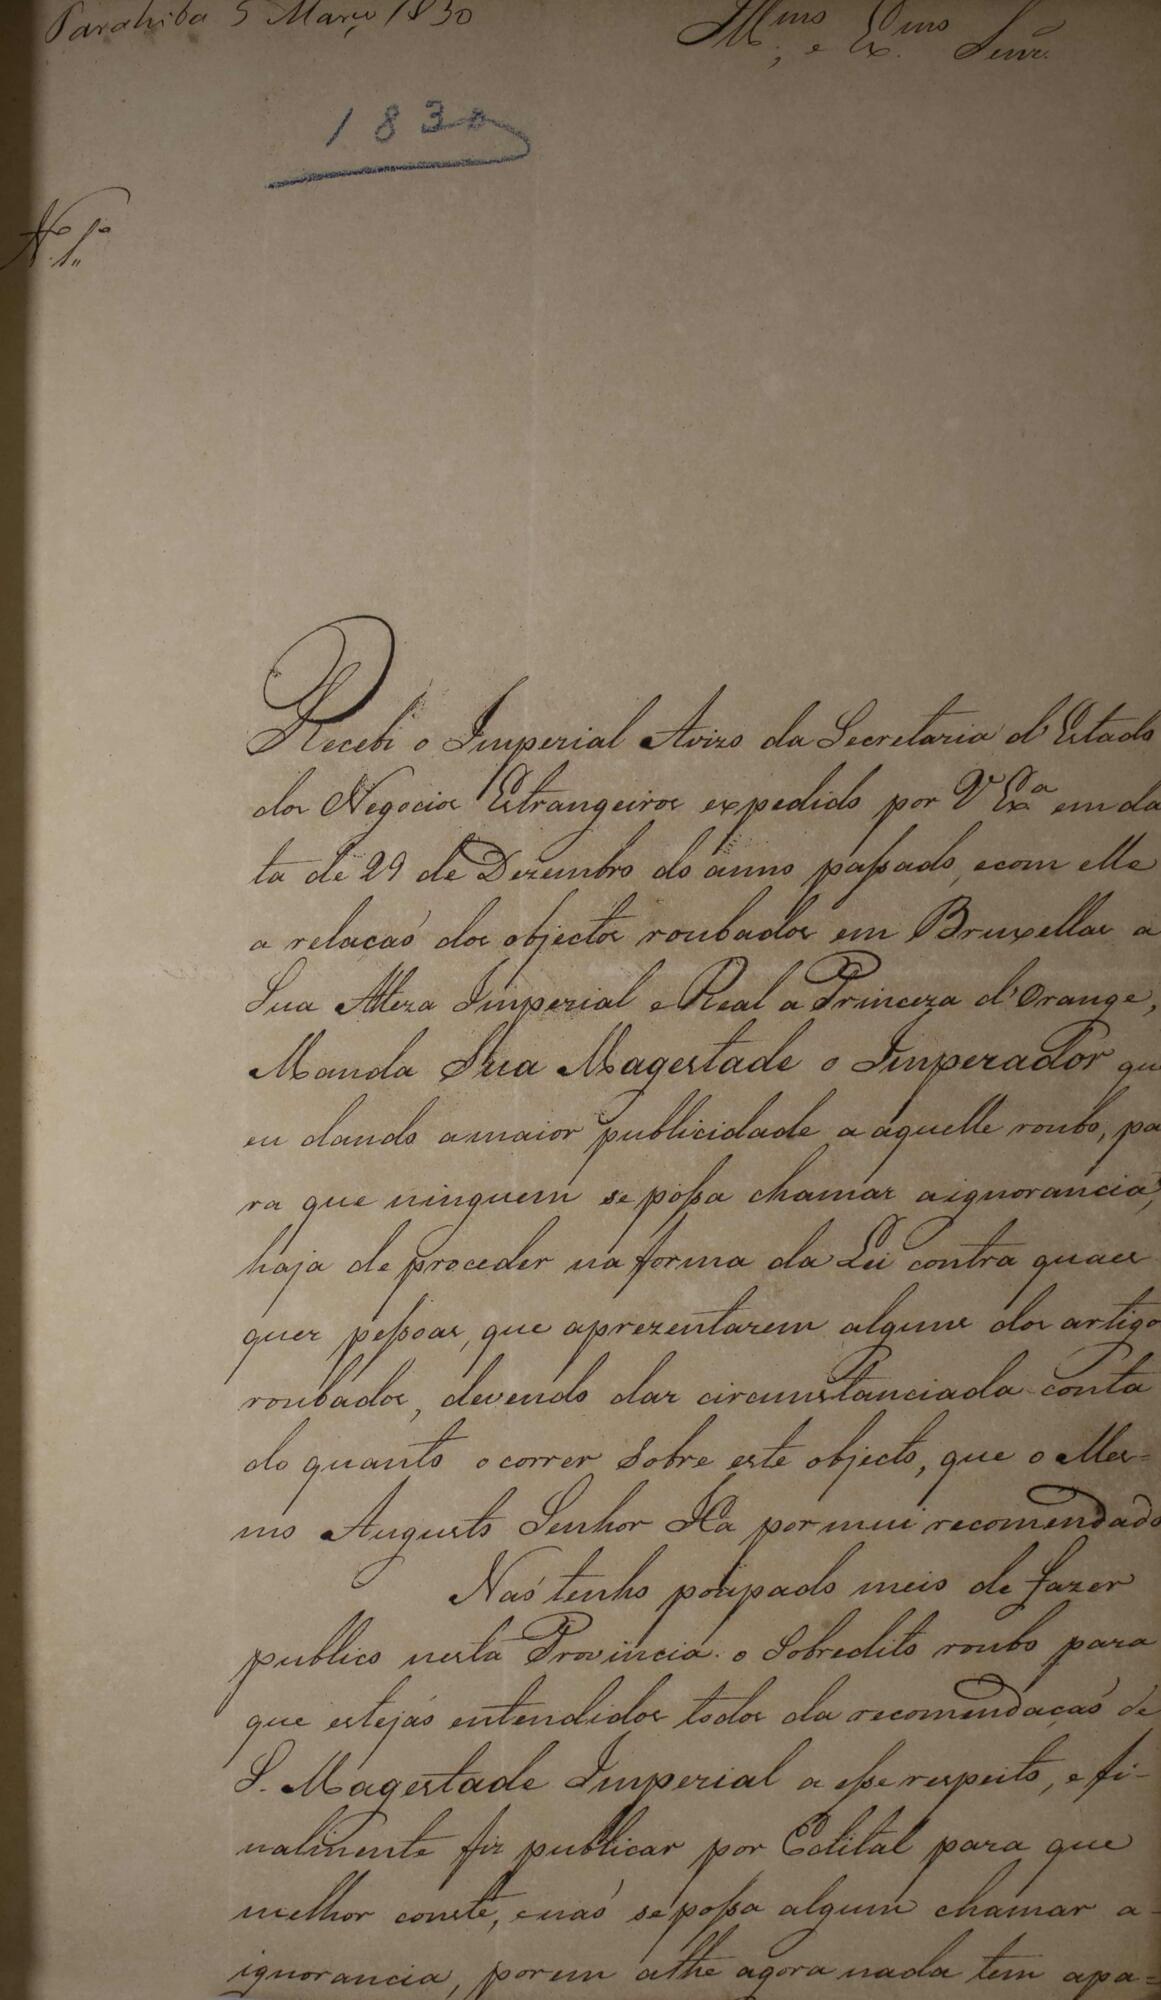 Parahiba 5 Março 1830
Illmo, e Exmo Senr.
1830
N. 1.
Recebi o Imperial Avizo da Secretaria d'Estado
dos Negocios Estrangeiros expedido por V Exa em da
ta de 29 de Dezembro do anno passado, ecom elle
a relacaõ dos objectos roubados em Bruxellas a
Sua Alteza Imperial e Real a Princeza d'Orange,
Manda Sua Magestade o Imperador qu
eu dando amaior publicidade a aquelle roubo, pa
ra que ninguem se possa chamar aignorancia,
haja de proceder na forma da Lei contra quaes
quer pessoas, que aprezentarem alguns dos artigo
roubados, devendo dar circumstanciada conta
do quanto ocorrer sobre este objecto, que o Mes=
mo Augusto Senhor Ha por mui recomendado
Naõ tenho poupado meis de fazer
publico nesta Provincia o Sobredito roubo para
que estejaõ entendidos todos da recomendacaõ de
S. Magestade Imperial a esse respeito, e fi-
nalmente fiz publicar por Edital para que
melhor conste, enaõ se possa algum chamar a-
ignorancia, porem athe agora nada tem apa=